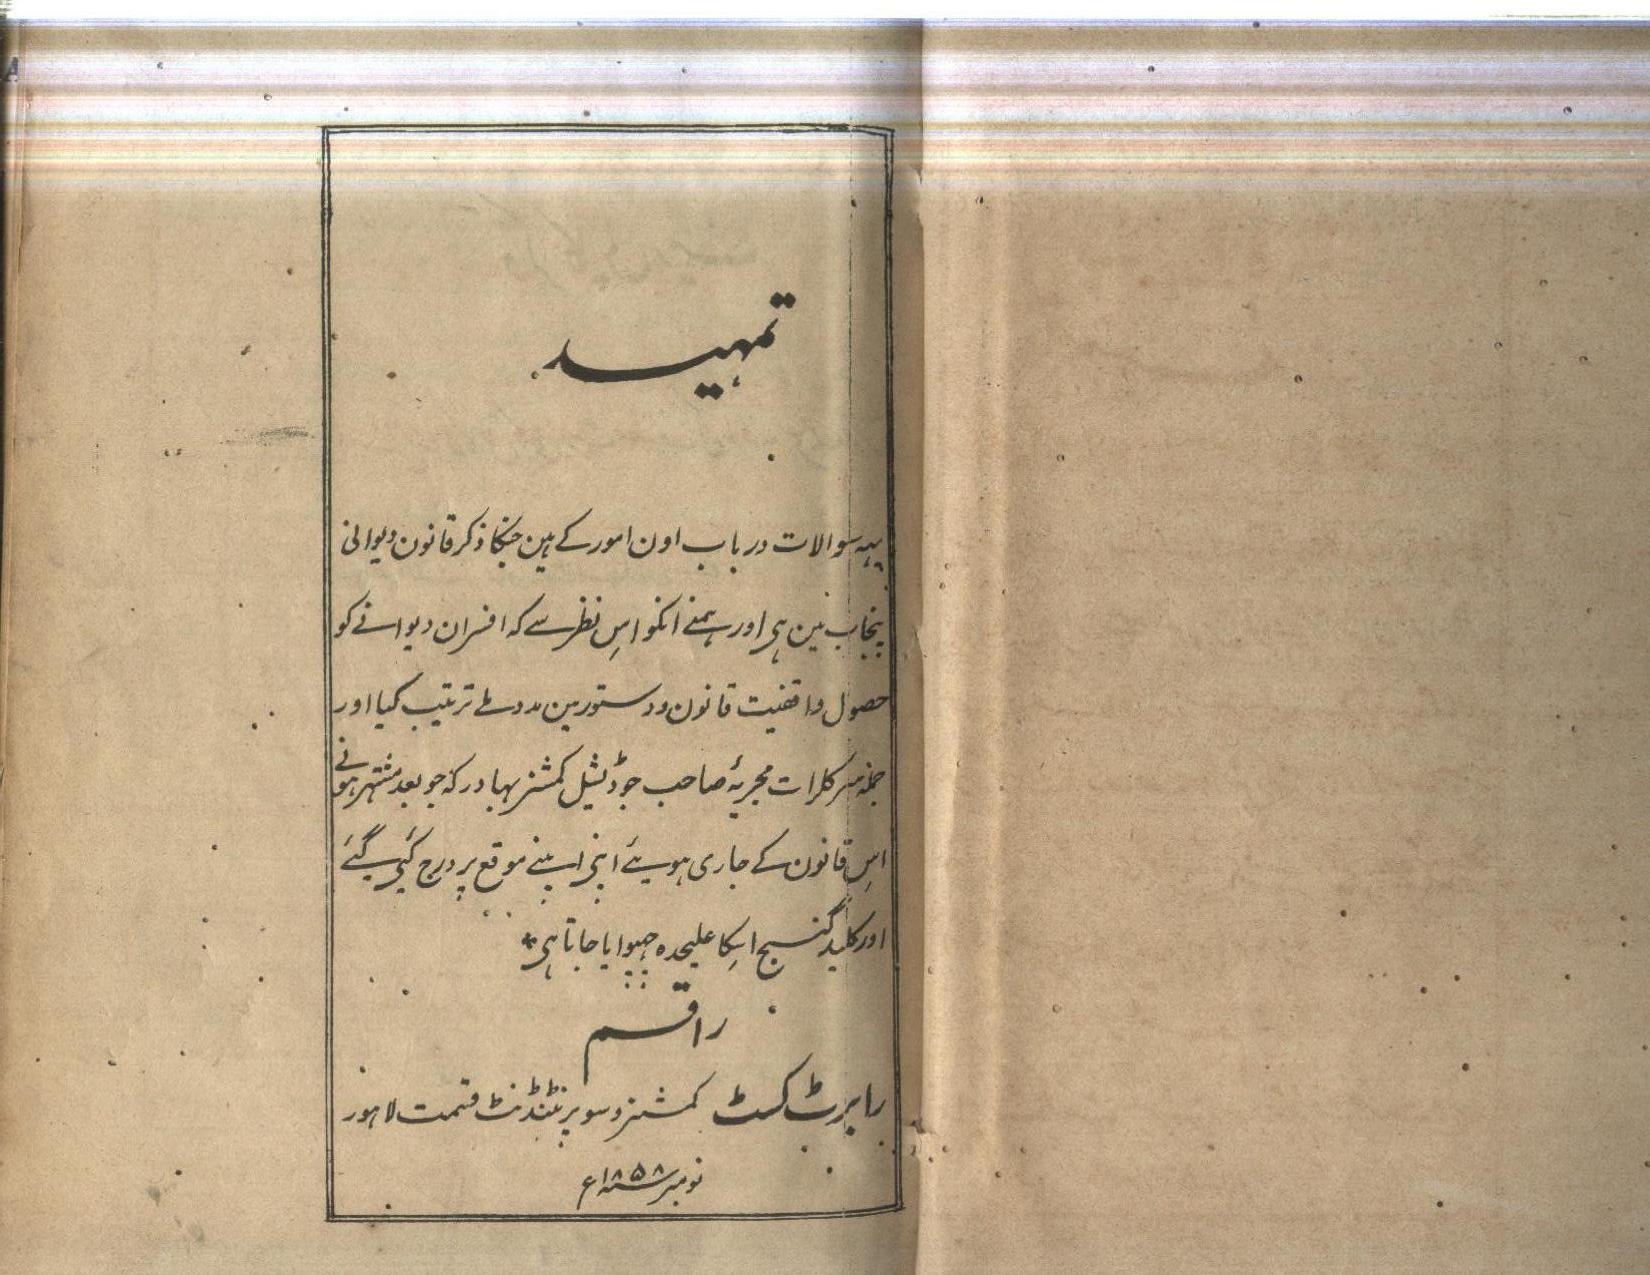 تمہید
یہہ سوالات در باب اون امور کے ہین جنکا ذکر قانون دیوانی
پنجاب مین ہی اور ہمنے انکو اس نظر سے کہ افسران دیوانے کو
حصول واقفیت قانون و دستور مین مدد ملے ترتیب کیا اور
جملہ سرکلرات مجریۂ صاحب جوڈیشیل کمشنر بہادر کہ جو بعد مشتہر ہونے
اِس قانون کے جاری ہوئے اپنی اپنے موقع پر درج کئی گئے
اور کلید گنج اسکا علیحدہ چھپوایا جاتا ہی *
راقم
رابرٹ کسٹ کمشنر و سوپرنٹنڈنٹ قسمت لاہور
نومبر سنہ ۱۸۵۸ع